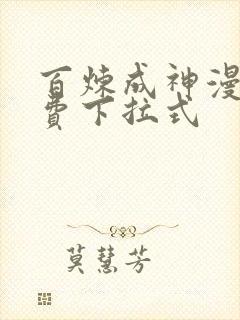 百炼成神漫
费下拉式
莫慧芳